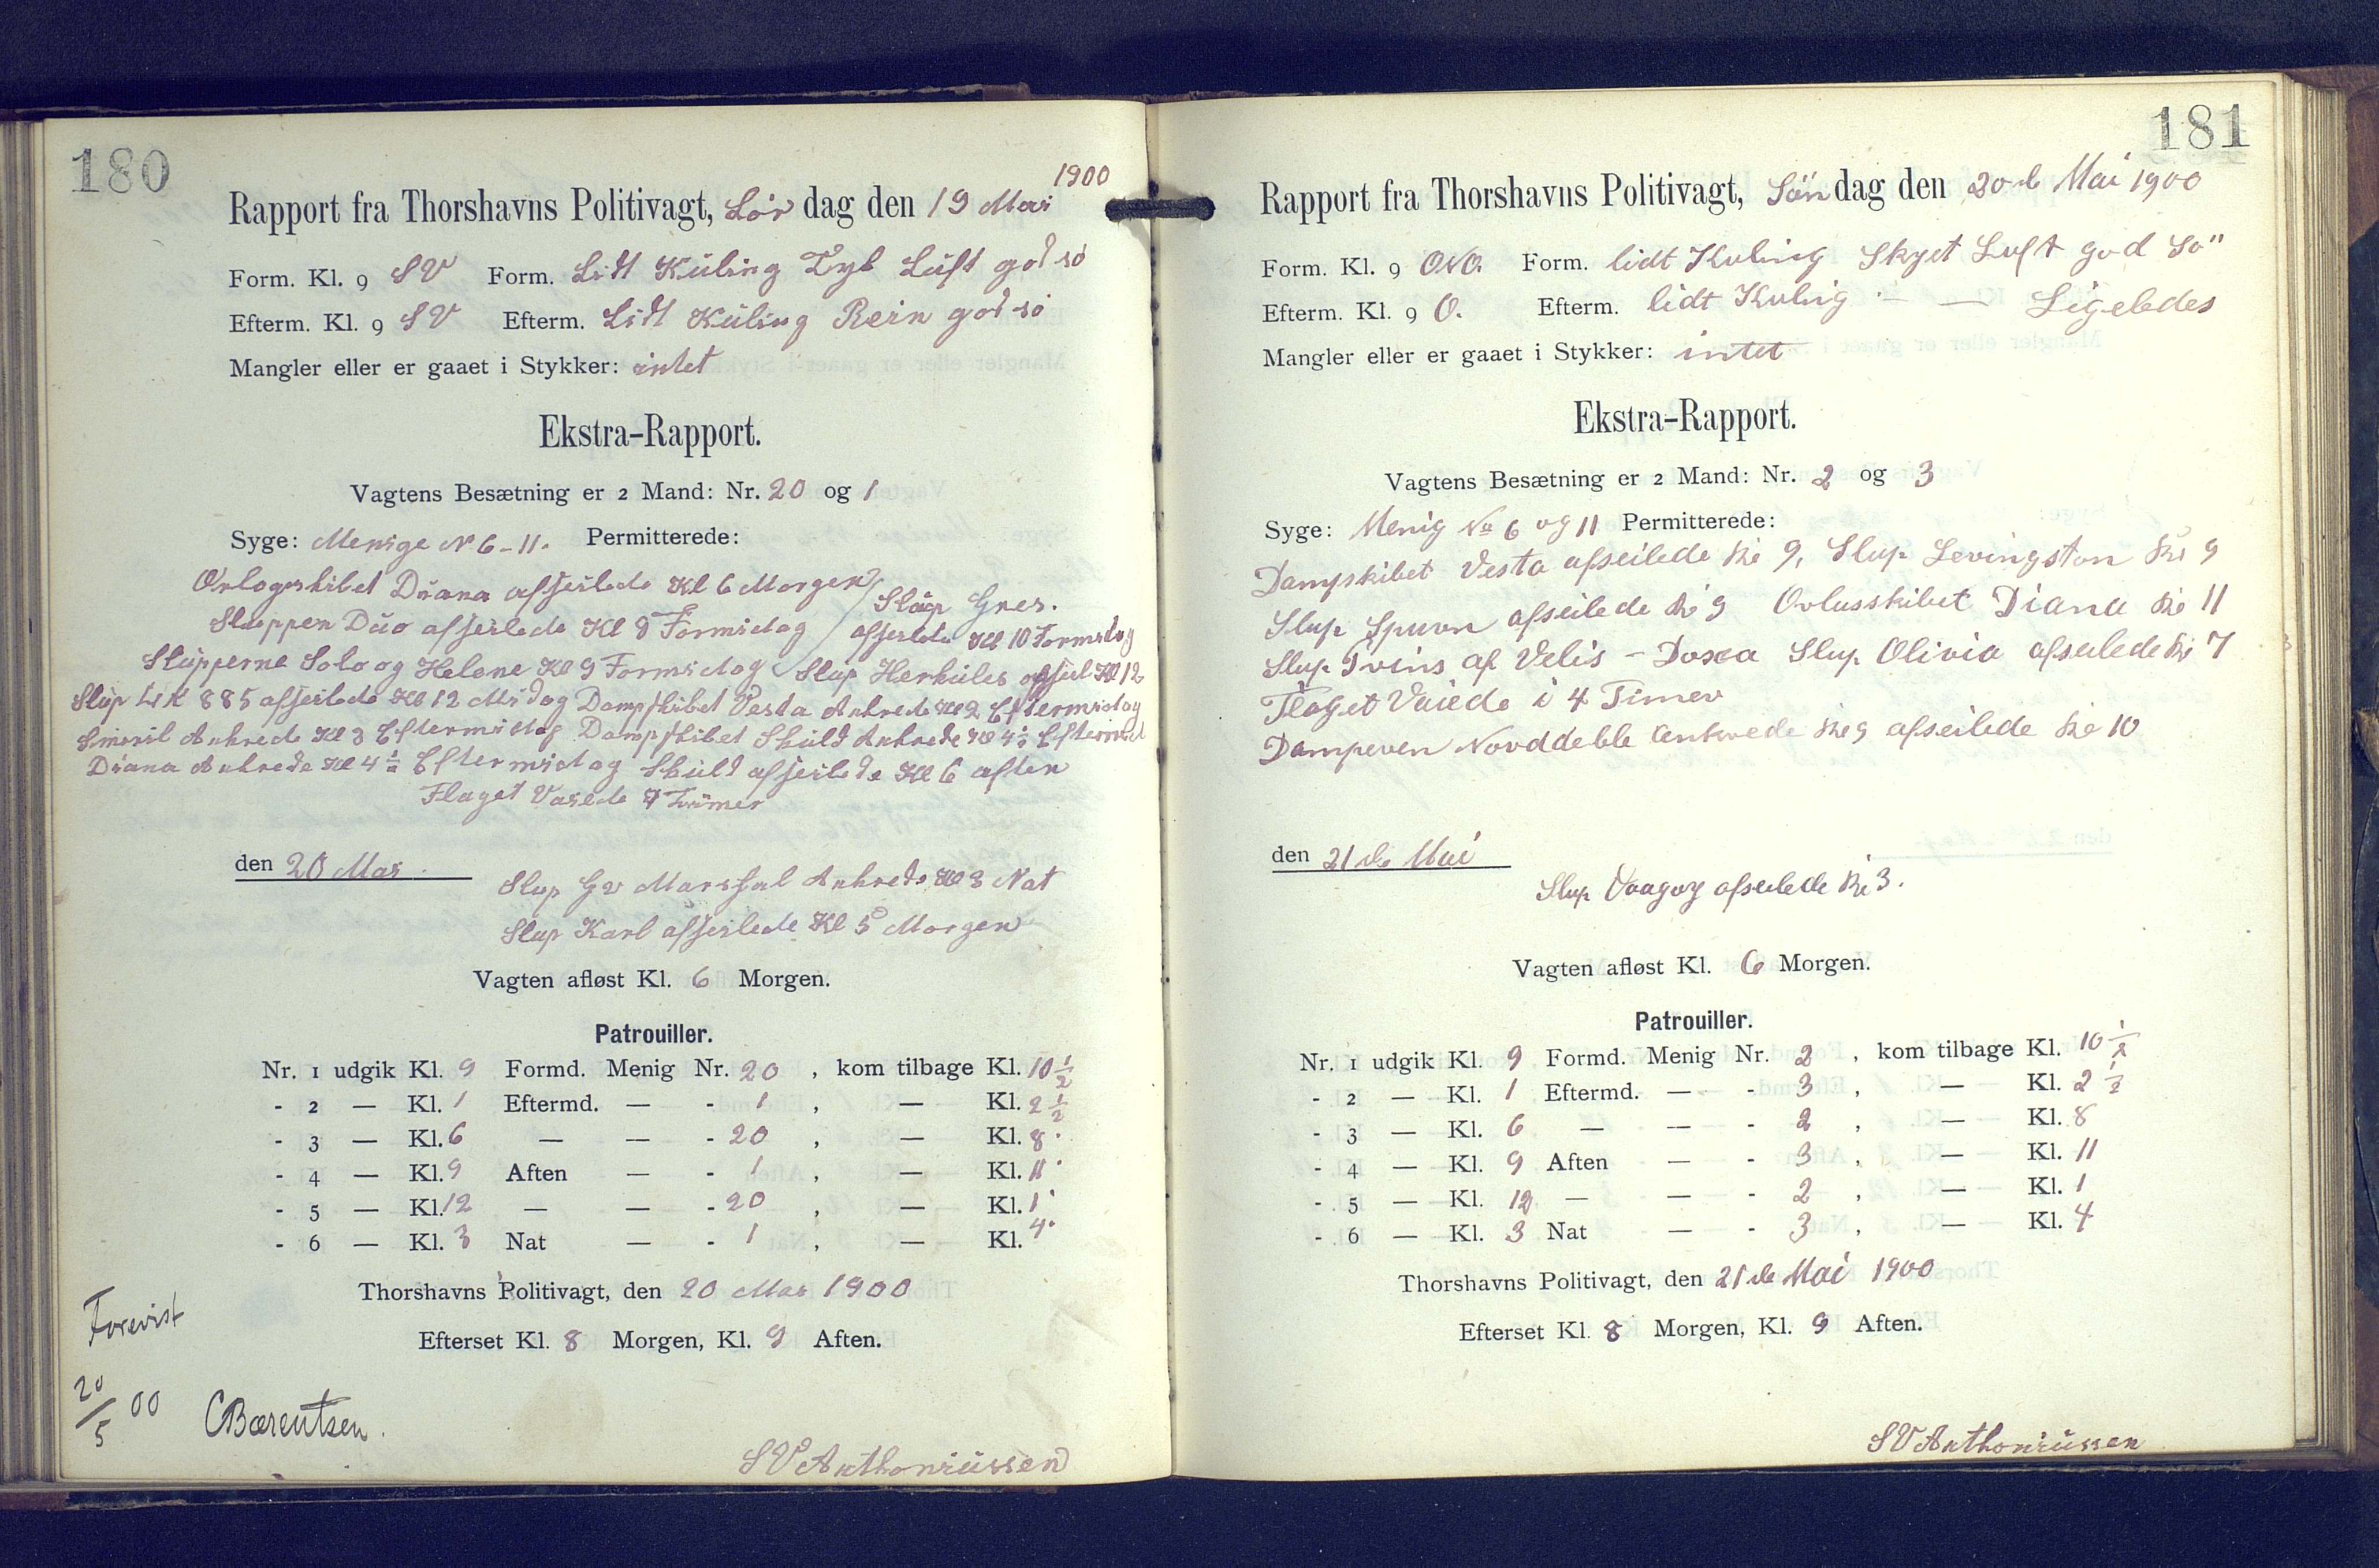 180
1900
Rapport fra Thorshavns Politivagt, Lör dag den 19 Mai
Form. Kl. 9 SV Form. Lidt Küling Tyk Lüft god sö
Efterm. Kl. 9 SV Efterm. Lidt Küling Rein god sö
Mangler eller er gaaet i Stykker: intet
Ekstra-Rapport.
Vagtens Besætning er 2 Mand: Nr. 20 og 1
Syge: Menige N 6 - 11. Permitterede:
Orlogsskibet Diana afseilede Kl 6 Morgen
Sluppen Düo afseilede Kl 8 Formidag / Slüp Gres.
afseilede Kl 10 Formidag
Slüpperne Solo og Helene Kl 9 Formidag Slup Herküles afseil Kl 12
Slüp 885 afseilede Kl 12 Midag Dampskibet Vesta Ankrede Kl 2 Eftermidag
Smiril Ankrede Kl 3 Eftermidag Dampskibet Sküld Ankrede Kl 4½ Eftermid
Diana Ankrede Kl 4½ Eftermidag Sküld afseilede Kl 6 aften
Flaget Vaiede 7 Timer
den 20 Mai
Slup Gv Marsjal Ankrede Kl 3 Nat
Slup Karl afseilede Kl 5 Morgen
Vagten afløst Kl. 6 Morgen.
Patrouiller.
Nr. 1 udgik Kl. 9 Formd. Menig Nr. 20 , kom tilbage Kl. 10½
- 2 — Kl. 1 Eftermd. — - 1 , — Kl. 2½
- 3 — Kl. 6 — — - 20 , — Kl. 8.
- 4 — Kl. 9 Aften — - 1 , — Kl. 11.
- 5 — Kl. 12 — — - 20 , — Kl. 1.
- 6 — Kl. 3 Nat — - 1 , — Kl. 4.
Thorshavns Politivagt, den 20 Mai 1900
Efterset Kl. 8 Morgen, Kl. 9 Aften.
Forevist
20/5 00 CBærentsen.
SV Anthoniüssen
181
Rapport fra Thorshavns Politivagt, Sön dag den 20de Mai 1900
Form. Kl. 9 ONO. Form. lidt Kuling Skyet Luft god Sö
Efterm. Kl. 9 O. Efterm. lidt Kuling — — Ligeledes
Mangler eller er gaaet i Stykker: intet
Ekstra-Rapport.
Vagtens Besætning er 2 Mand: Nr. 2 og 3
Syge: Menig No 6 og 11 Permitterede:
Dampskibet Vesta afseilede Kl 9, Slup Levingston Kl 9
Slup Spurn afseilede Kl 9 Orlusskibet Diana Kl 11
Slup Tvins af Velis - Doxea Slup Olivia afseilede Kl 7
Flaget Vaiede i 4 Timer
Damperen Norddeble Ankrede Kl 9 afseilede Kl 10
den 21de Mai
Slup Vaagoy afseilede Kl 3.
Vagten afløst Kl. 6 Morgen.
Patrouiller.
Nr. 1 udgik Kl. 9 Formd. Menig Nr. 2 , kom tilbage Kl. 10½
- 2 — Kl. 1 Eftermd. — - 3 , — Kl. 2½
- 3 — Kl. 6 — — - 2 , — Kl. 8
- 4 — Kl. 9 Aften — - 3 , — Kl. 11
- 5 — Kl. 12 — — - 2 , — Kl. 1
- 6 — Kl. 3 Nat — - 3 , — Kl. 4
Thorshavns Politivagt, den 21de Mai 1900
Efterset Kl. 8 Morgen, Kl. 9 Aften.
SV Anthoniüssen